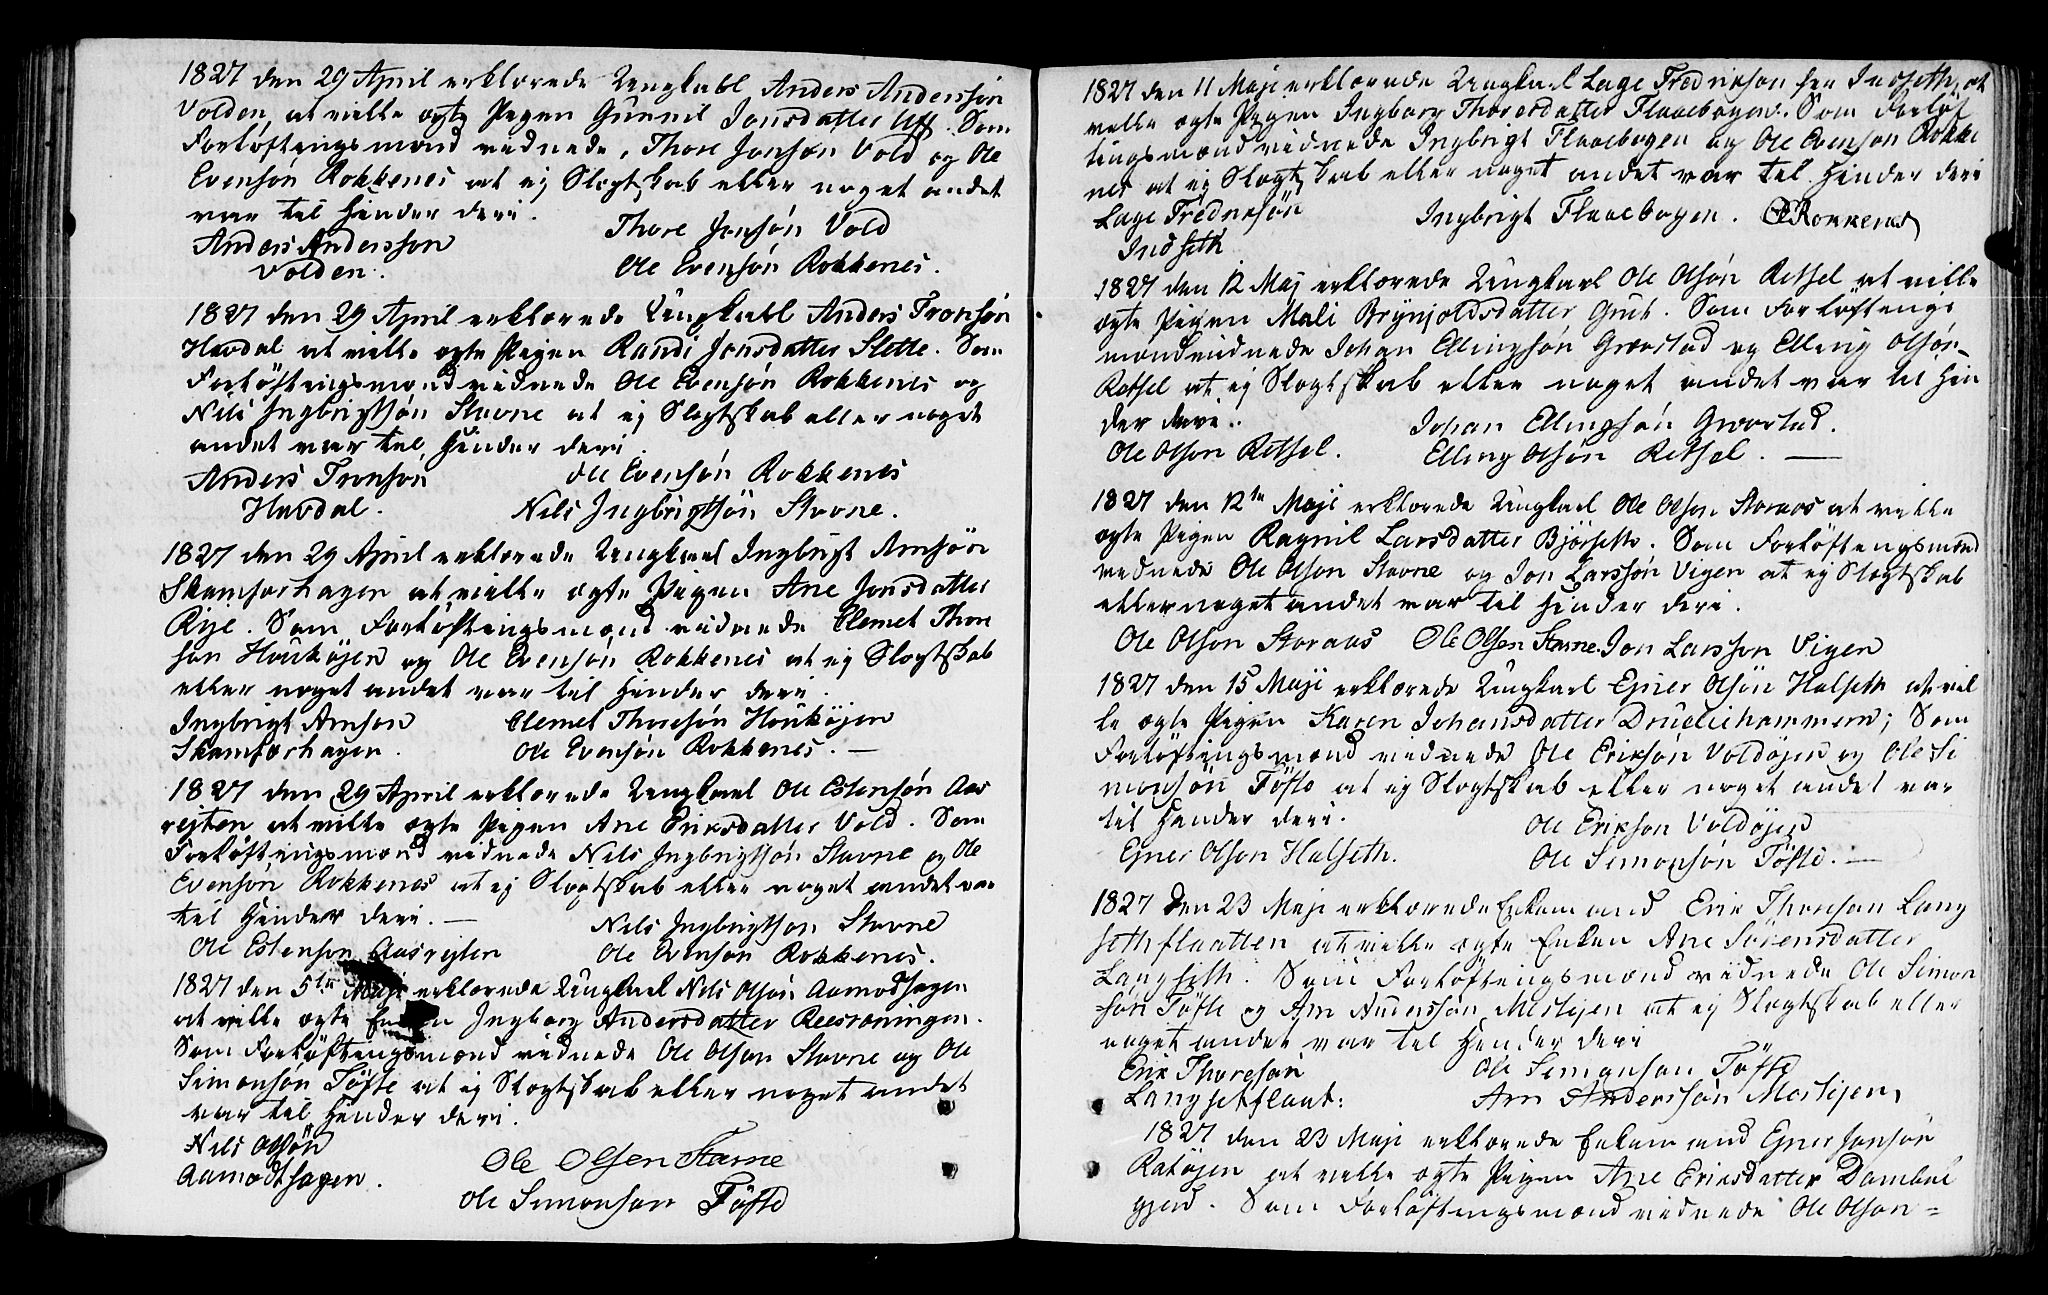 1827 den 29 April erklærede Ungkabl Anders Anderssön
Volden, at ville ægte Pigen Gunnil Jonsdatter Uff. Som
Forlöftingsmænd vidnede, Thore Jonsson Vold og Ole
Evensön Rokkenes at ej Slægtskab eller noget andet
var til Hinder deri.
Thore Jonsön Vold
Anders Andersson
Volden.
Ole Evensön Rokkenes.
1827 den 29 April erklærede Ungkabl Anders Tronsön
Hævdal at ville ægte Pigen Randi Jonsdatter Slette. Som
Forlöftingsmænd vidnede Ole Evensön Rokkenes og
Nils Ingbrigtsön Stavne at ej Slægtskab eller noget
andet var til Hinder deri.
Anders Tronsön
Ole Evensön Rokkenes
Hævdal.
Nils Ingbrigtsön Stavne.
1827 den 29 April erklærede Ungkael Ingbrigt Arnsön
Skamferhagen at ville ægte Pigen Ane Jonsdatter
Rije. Som Forlöftingsmænd vidnede Clemet Thore
sön Houköjen og Ole Evensön Rokkenes at ej Slægtskab
eller noget andet var til Hinder deri.
Ingbrigt Arnson
Clemet Thoresön Houköjen
Skamferhagen.
Ole Evensön Rokkenes. —
1827 den 29 April erklærede Ungkael Ole Estensön Aas
rejten at ville ægte Pigen Ane Eriksdatter Vold. Som
Forlöftingsmænd vidnede Nils Ingbrigtsön Stavne og Ole
Evensön Rokkenes at ej Slægtskab eller noget andet var
til Hinder deri. —
Nils Ingbrigtson Stavne
Ole Estenson Aasrejten
Ole Evensön Rokkenes.
1827 den 5te Maji erklærede Ungkael Nils Olsön Aamodshagen
at ville ægte Enken Ingborg Andersdatter Reesroningen.
Som Forlöftingsmænd vidnede Ole Olsön Stavne og Ole
Simonsön Töfte at ej Slægtskab eller noget andet
var til Hinder deri.
Nils Olsön
Aamodthagen.
Ole Olsen Stavne
Ole Simonson Töfte
1827 den 11 Maji erklærede Ungkael Lage Fredrikson fra Indseth, at
ville ægte Pigen Ingborg Thoresdatter Flaaebogen. Som Forlöf
tingsmænd vidnede Ingbrigt Flaaebogen og Ole Evenson Rokke
nes at ej Slægtskab eller noget andet var til Hinder deri
Lage Fredriksön
Ingbrigt Flaaebogen. OERokkenes
Indseth
1827 den 12 Maj erklærede Ungkael Ole Olsön Retsel at ville
ægte Pigen Mali Brynjoldsdatter Grut. Som Forlöftings
mænd vidnede Johan Ellingsön Græstad og Elling Olsön
Retsel at ej Slægtskab eller noget andet var til Hin
der deri.
Johan Ellingsön Græstad.
Ole Olson Retsel.
Elling Olsön Retsel. —
1827 den 12te Maji erklærede Ungkael Ole Olson Storaas at ville
ægte Pigen Ragnil Larsdatter Bjørseth. Som Forlöftingsmænd
vidnede Ole Olson Stavne og Jon Larssön Vigen at ej Slægtskab
eller noget andet var til Hinder deri.
Ole Olson Storaas Ole Olsen Stavne. Jon Larsson Vigen
1827 den 15 Maji erklærede Ungkael Ejner Olsön Halseth at vil
le ægte Pigen Karen Johansdatter Druelihammern; Som
Forlöftingsmænd vidnede Ole Eriksön Voldöjen og Ole Si
monsön Töfte at ej Slægtskab eller noget andet var
til Hinder deri.
Ole Erikson Voldöjen
Ejner Olson Halseth.
Ole Simonsön Töfte. —
1827 den 23 Maji erklærede Enkemand Erik Thoreson Lang
sethflaatten at ville ægte Enken Ane Sörensdatter
Langseth. Som Forlöftingsmænd vidnede Ole Simon
sön Töfte og Arn Anderssön Meslijen at ej Slægtskab eller
noget andet var til Hinder deri
Erik Thoresön
Ole Simonson Töfte
Langsetflaat:
Arn Anderssön Meslijen,
1827 den 23 Maji erklærede Enkemand Ejner Jonsön
Ratöjen at ville ægte Pigen Ane Eriksdatter Dambul
gjerd. Som Forlöftingsmænd vidnede Ole Olson =